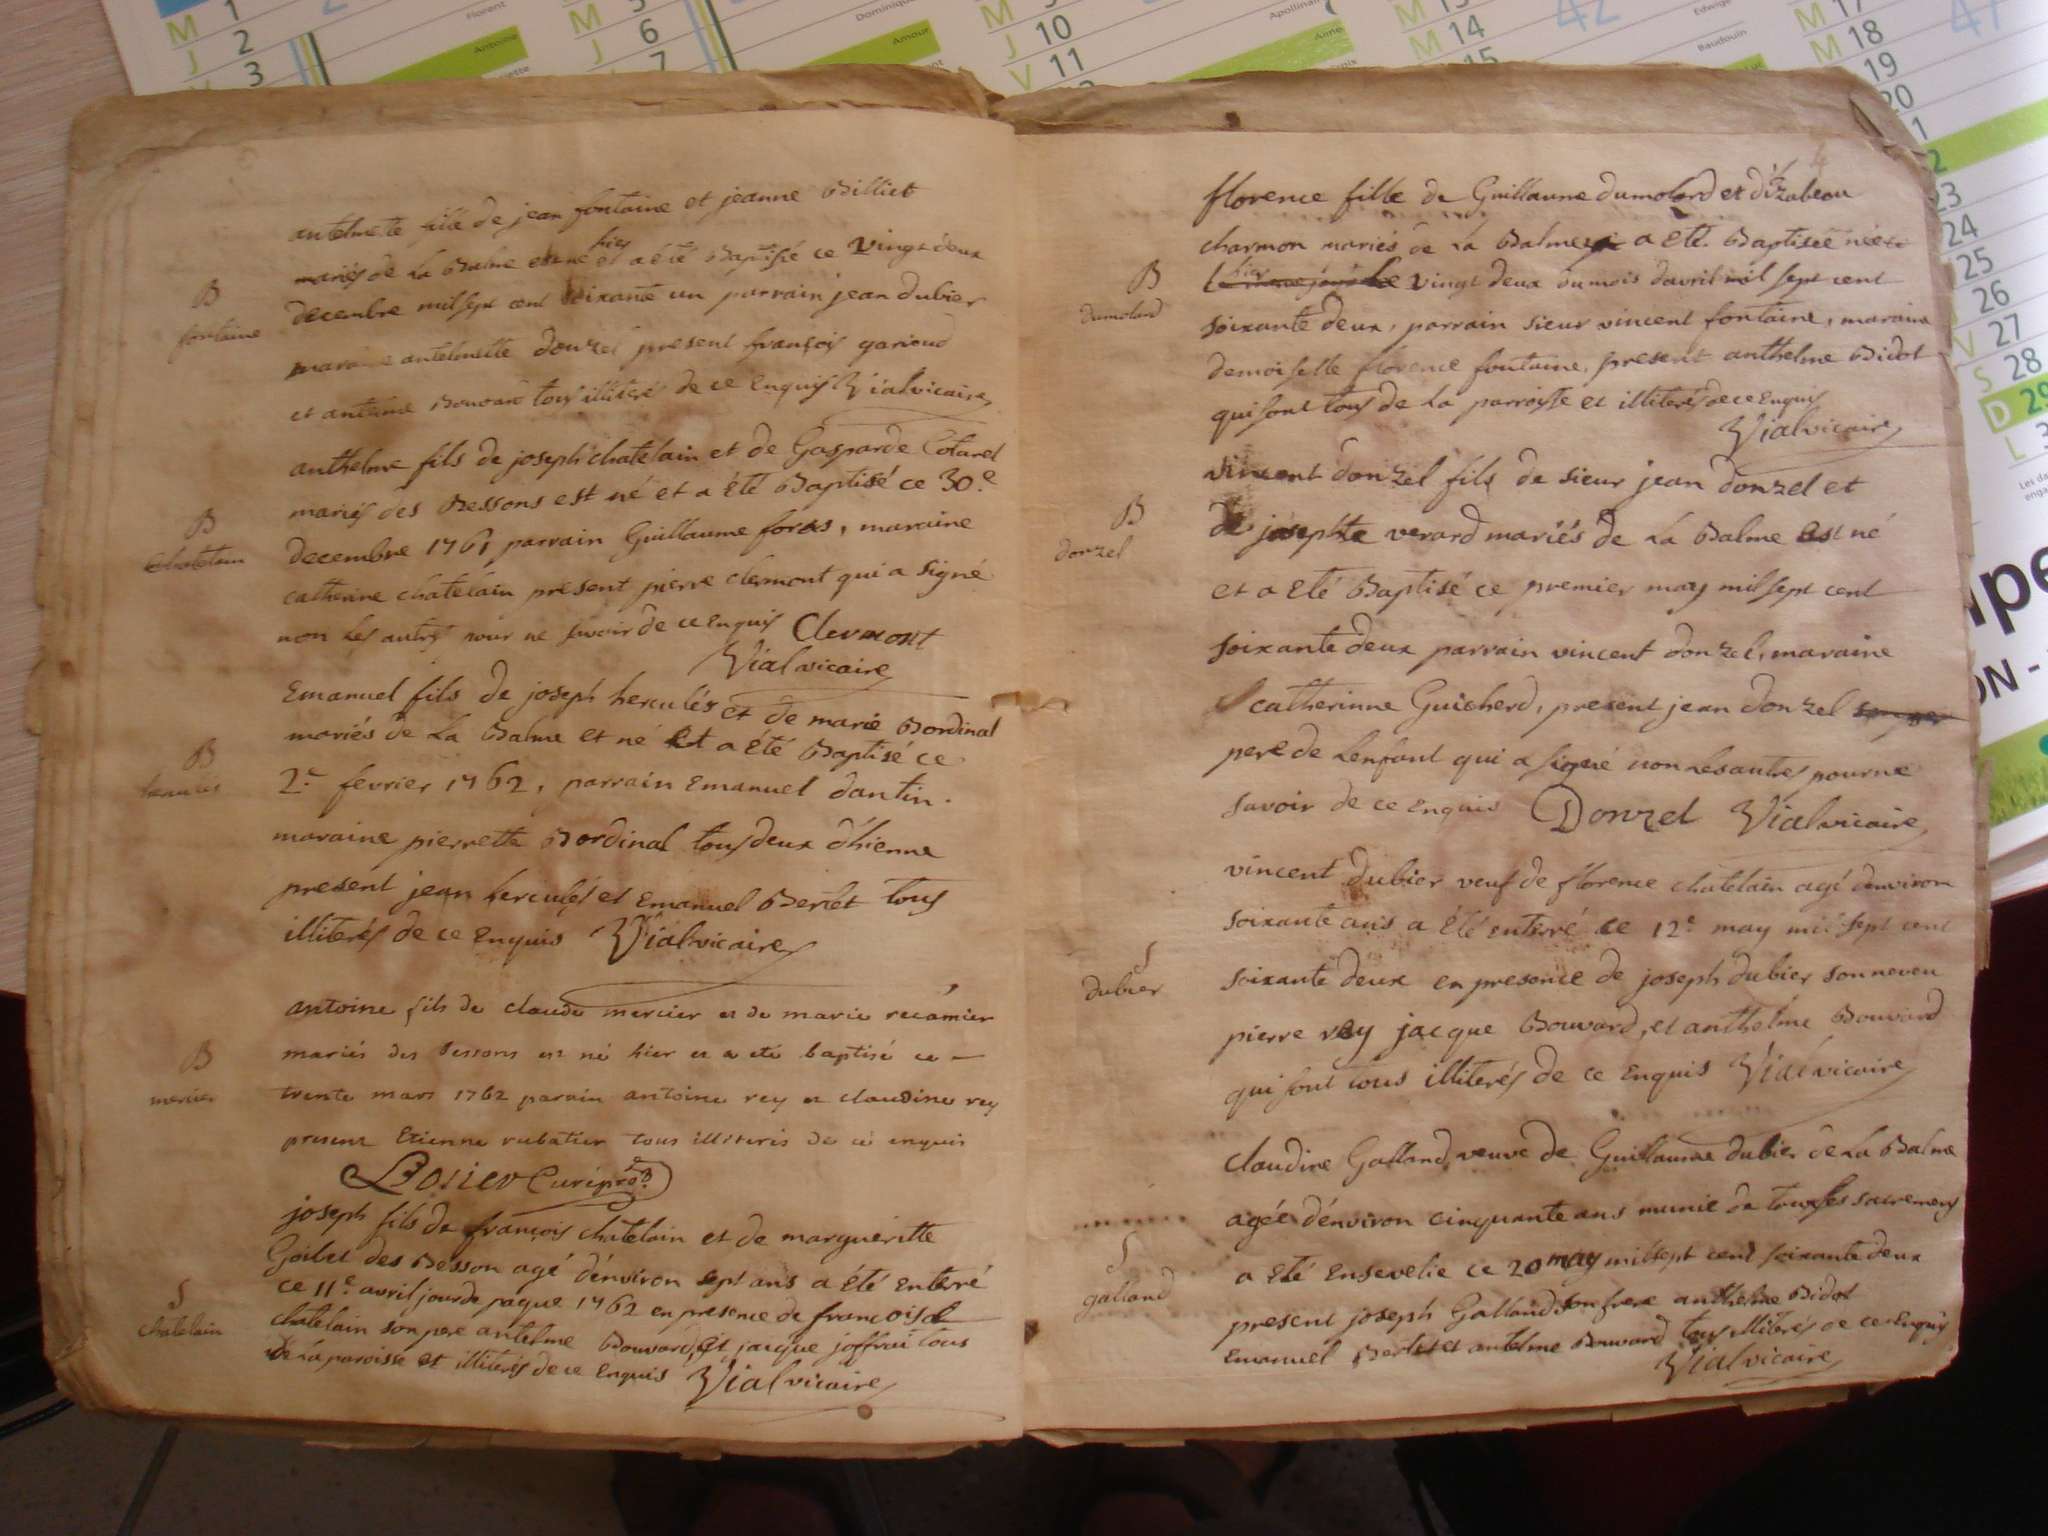 antelmete fille de jean fontaine et jeanne Billiet
mariés de La Balme est né hier et a été Baptisé ce vingt deux
B
fontaine
decembre mil sept cent soixante un parrain jean dubier
maraine antelmette donzel present françois garioud
et antelme Bouvard tous illiterés de ce enquis Vial vicaire
anthelme fils de joseph chatelain et de Gasparde Cotarel
mariés des Bessons est né et a été Baptisé ce 30.e
B
chatelain
decembre 1761 parrain Guillaume foras, maraine
catherine chatelain present pierre clermont qui a signé
non les autres pour ne savoir de ce enquis Clermont
Vial vicaire
Emanuel fils de joseph herculés et de marie Bordinal
mariés de La Balme et né et a été Baptisé ce
B
herculés
2.e fevrier 1762, parrain Emanuel dantin.
maraine pierrette Bordinal tous deux d'hienne
present jean herculés et Emanuel Berlet tous
illiterés de ce enquis Vial vicaire
antoine fils de claude mercier et de marie récamier
mariés des Bessons est né hier et a eté baptisé ce
B
mercier
trente mars 1762 parain antoine rey et claudine rey
present Etienne rubatier tous illiteris de ce enquis
Curé
joseph fils de françois chatelain et de margueritte
Goilet des Besson agé d'environ sept ans a été enterré
ce 11.e avril jour de paque 1762 en presence de francois
S
chatelain
chatelain son pere antelme Bouvard, et jacque joffrai tous
de la paroisse et illiterés de ce enquis Vial vicaire
florence fille de Guillaume dumolard et d'izabeau
charmon mariés de La Balme a eté Baptisée née
B
dumolard
hier le vingt deux du mois davril mil sept cent
soixante deux, parrain sieur vincent fontaine, maraine
demoiselle florence fontaine, present anthelme Bidot
qui sont tous de La parroisse et illiterés de ce enquis
Vial vicaire
vincent donzel fils de sieur jean donzel et
B
donzel
de josephte verard mariés de La Balme est né
et a eté Baptisé ce premier may mil sept cent
soixante deux parrain vincent donzel, maraine
catherinne Guicherd, present jean donzel
pere de Lenfant qui a signé non Les autres pour ne
savoir de ce enquis Donzel Vial vicaire
vincent dubier veuf de florence chatelain agé d'environ
soixante ans a été enterré ce 12.e may mil sept cent
S
dubier
soixante deux en presence de joseph dubier son neveu
pierre rey jacque Bouvard, et anthelme Bouvard
qui sont tous illiterés de ce enquis Vial vicaire
claudine Galland veuve de Guillaume dubier de La Balme
agée d'environ cinquante ans munie de tous ses sacremens
S
galland
a eté ensevelie ce 20 may mil sept cent soixante deux
present joseph Galland son frere anthelme Bidot
Emanuel Berlet et antelme Bouvard tous illiterés de ce enquis
Vial vicaire